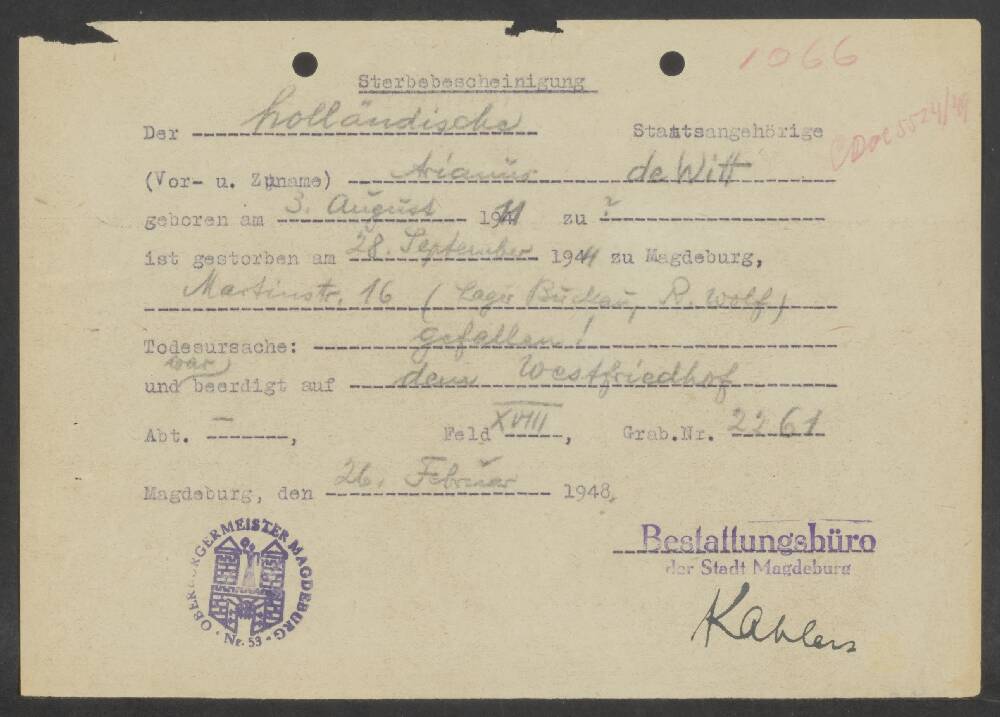 1066
Sterbebescheinigung
Der holländische Staatsangehörige
CDoc 5524/49
(Vor- u. Zuname) Arianus de Witt
geboren am 3. August 1911 zu ?
ist gestorben am 28. September 1944 zu Magdeburg,
Martinstr. 16 (Lager Buckau, R. Wolf)
Todesursache: gefallen!
war
und beerdigt auf dem Westfriedhof
Abt. –, Feld XVIII, Grab.Nr. 2261
Magdeburg, den 26. Februar 1948.
OBERBÜRGERMEISTER MAGDEBURG
Nr. 53
Bestattungsbüro
der Stadt Magdeburg
Kahlers